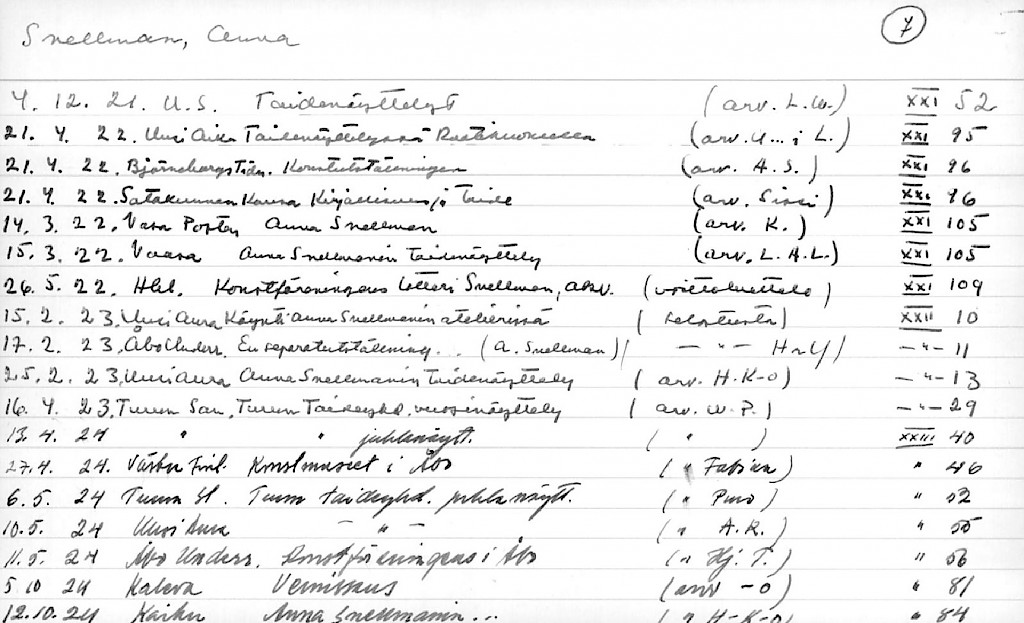 Snellman, Anna 7
4. 12. 21. U.S. Taidenäyttelyt (arv. L.W.) XXI 52
21. 4. 22. Uusi Aika Taidenäyttelyssä (arv. U...i L.) XXI 95
21. 4. 22. Björneborgs Tidn. Konstutställningen (arv. A.S.) XXI 96
21. 4. 22. Satakunnan Kansa Kirjallisuus ja Taide (arv. Sissi) XXI 96
14. 3. 22. Vasa Posten Anna Snellman (arv. K.) XXI 105
15. 3. 22. Vaasa Anna Snellmanin taidenäyttely (arv. L.A.L.) XXI 105
26. 5. 22. Hbl. Konstföreningens lotteri Snellman, akv. (voittoluettelo) XXI 109
15. 2. 23. Uusi Aura Käynti Anna Snellmanin atelierissä (selostusta) XXII 10
17. 2. 23. Åbo Underr. En separatutställning... (A. Snellman) ( — " — H-r Y) — " — 11
25. 2. 23. Uusi Aura Anna Snellmanin taidenäyttely (arv. H.K-o) — " — 13
16. 4. 23. Turun San. Turun Taideyhd. vuosinäyttely (arv. W.P.) — " — 29
13. 4. 24 " " juhlanäytt. ( " ) XXIII 40
27.4. 24. Västra Finl. Konstmuseet i Åbo ( " Fabian) " 46
6. 5. 24 Turun Taideyhd. juhlanäytt. ( " Puro) " 52
10.5. 24 Uusi Aura — " — ( " A.R.) " 55
11.5. 24 Åbo Underr. Konstföreningens i Åbo ( " Hj. T.) " 56
5 10 24 Kaleva Vernissaus (arv -o) " 81
12.10.24 Kaiku Anna Snellmanin... ( " H-K-o) " 84